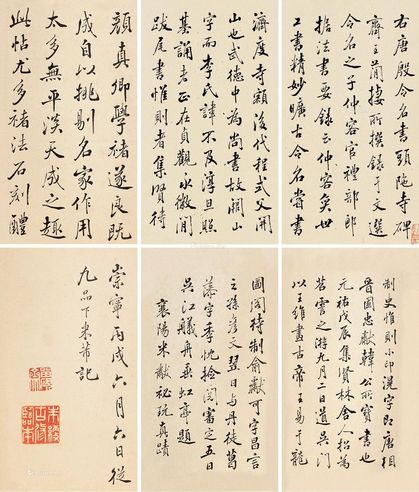 右唐殷令名書頭陁寺碑
齊王蕳棲所撰錄于文選
令名之子仲容官禮部郎
拠法書要錄云仲容奕世
工書精妙曠古令名嘗書
濟度寺額後代程式父開
山也武德中為尚書故開山
字而李氏諱不及淳旦照
基誦者正在貞觀永徽間
跋尾書惟則者集賢待
顏真卿學褚遂良既
成自以挑剔名家作用
太多無平淡天成之趣
此帖尤多褚法石刻醴
制史惟則小印洗字即唐相
晉國忠獻韓公所寶書也
元祐戊辰集賢林舍人招為
苕霅之游九月二日道吳門
以王維畫古帝王易于龍
圖閣待制俞獻可字昌言
之孫彥文翌日與丹徒葛
藻字季忱撿閱審定五日
吳江艤舟垂虹亭題
襄陽米黻祕玩真蹟
崇寧丙戌六月六日從
九品下米芾記